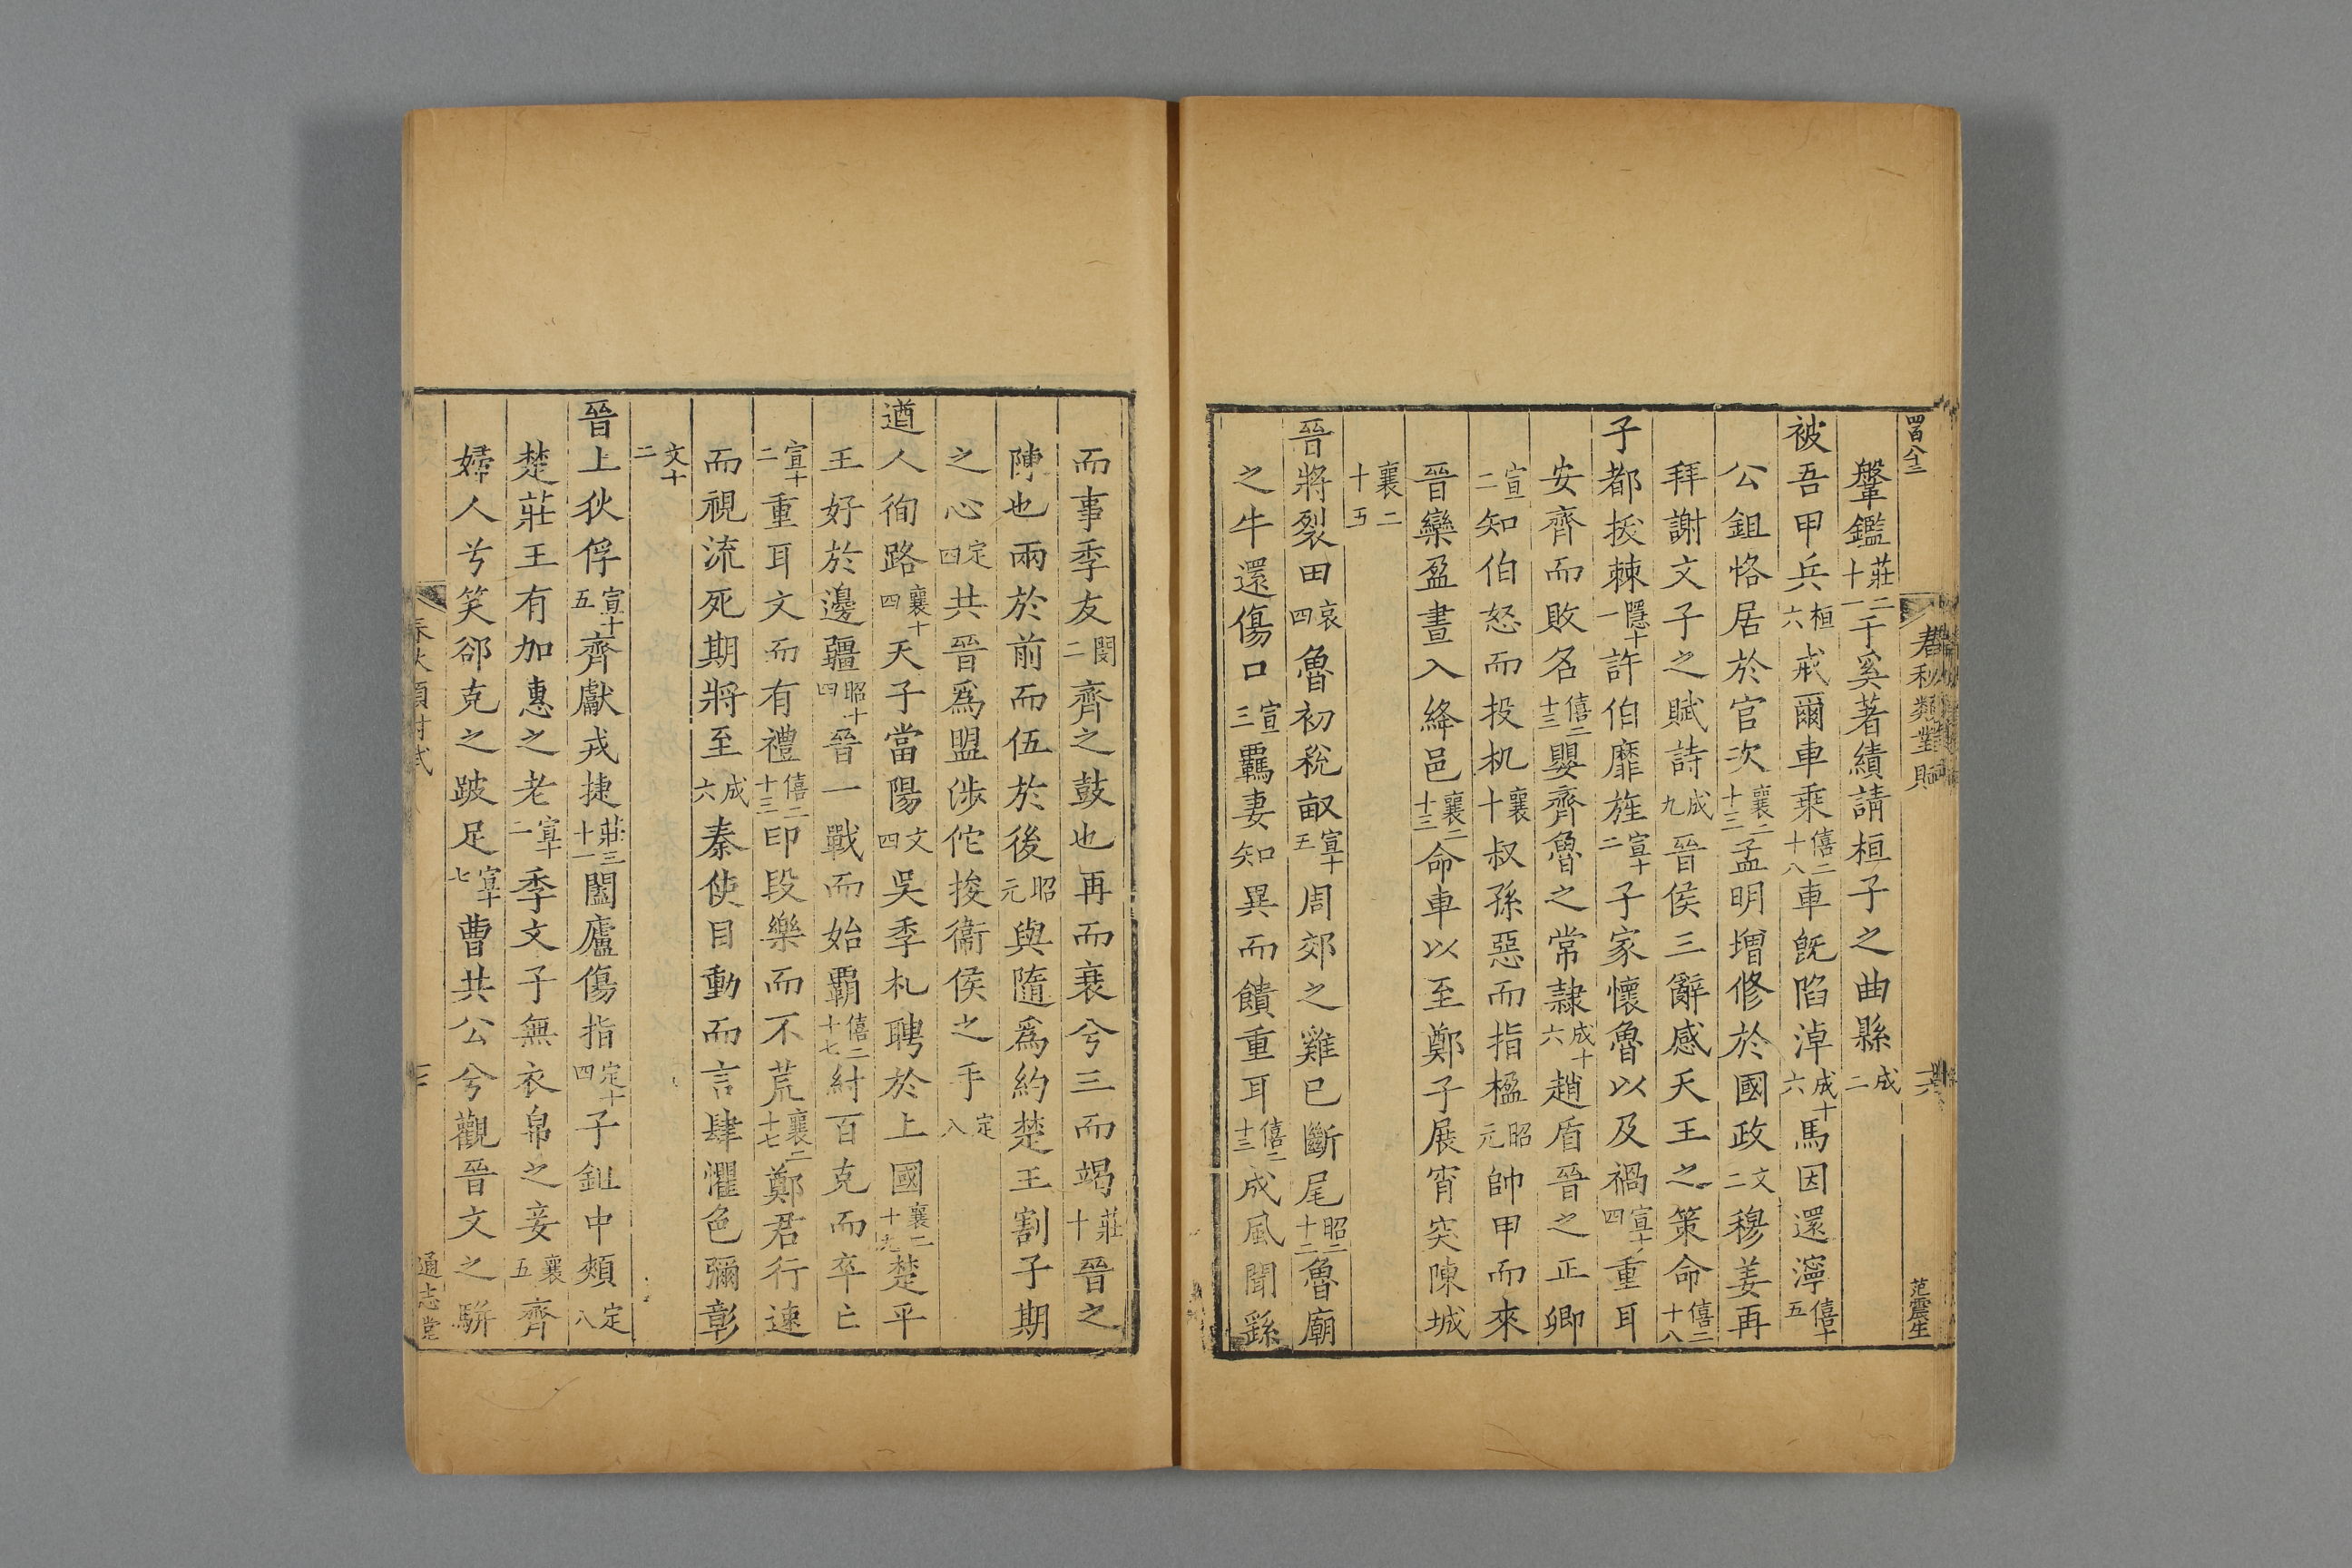 四百八十三
春秋類對賦
范震生
鞶鑑莊二十一千奚著績請桓子之曲縣成二
被吾甲兵桓六戒爾車乘僖二十八車旣陷淖成十六馬因還濘僖十五
公鉏恪居於官次襄二十三孟明增修於國政文二穆姜再
拜謝文子之賦詩成九晉侯三辭感天王之策命僖二十八
子都拔棘隱十一許伯靡旌宣十二子家懷魯以及禍宣十四重耳
安齊而敗名僖二十三嬰齊魯之常隷成十六趙盾晉之正卿
宣二知伯怒而投机襄十叔孫惡而指楹昭元帥甲而來
晉欒盈晝入絳邑襄二十三命車以至鄭子展宵突陳城
襄二十五
晉將裂田哀四魯初稅畝宣十五周郊之雞已斷尾昭二十二魯廟
之牛還傷口宣三羈妻知異而饋重耳僖二十三成風聞繇
而事季友閔二齊之鼓也再而衰兮三而竭莊十晉之
陳也兩於前而伍於後昭元與隨爲約楚王割子期
之心定四共晉爲盟涉佗捘衞侯之手定八
遒人徇路襄十四天子當陽文四吳季札聘於上國襄二十九楚平
王好於邊疆昭十四晉一戰而始霸僖二十七紂百克而卒亡
宣十二重耳文而有禮僖二十三印段樂而不荒襄二十七鄭君行速
而視流死期將至成六秦使目動而言肆懼色彌彰
文十二
晉上狄俘宣十五齊獻戎捷莊三十一闔廬傷指定十四子鉏中頰定八
楚莊王有加惠之老宣十二季文子無衣帛之妾襄五齊
婦人兮笑郤克之跛足宣十七曹共公兮觀晉文之駢
春秋類對賦
通志堂